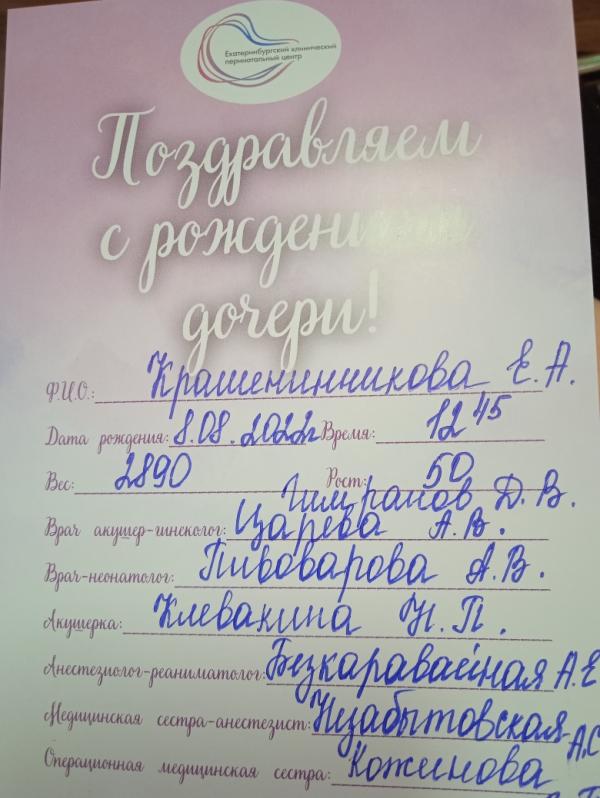 Екатеринбургский клинический
перинатальный центр
Поздравляем
с рождением
дочери!
Ф.И.О.: Крашенинникова Е.А.
Дата рождения: 8.08.2022г Время: 12 45
Вес: 2890 Рост: 50
Гимранов Д.В.
Врач акушер-гинеколог: Царева А.В.
Врач-неонатолог: Пивоварова А.В.
Акушерка: Клевакина Н.П.
Анестезиолог-реаниматолог: Безкаравайная А.Е
Медицинская сестра-анестезист: Незабытовская
А.С
Операционная медицинская сестра: Кожинова